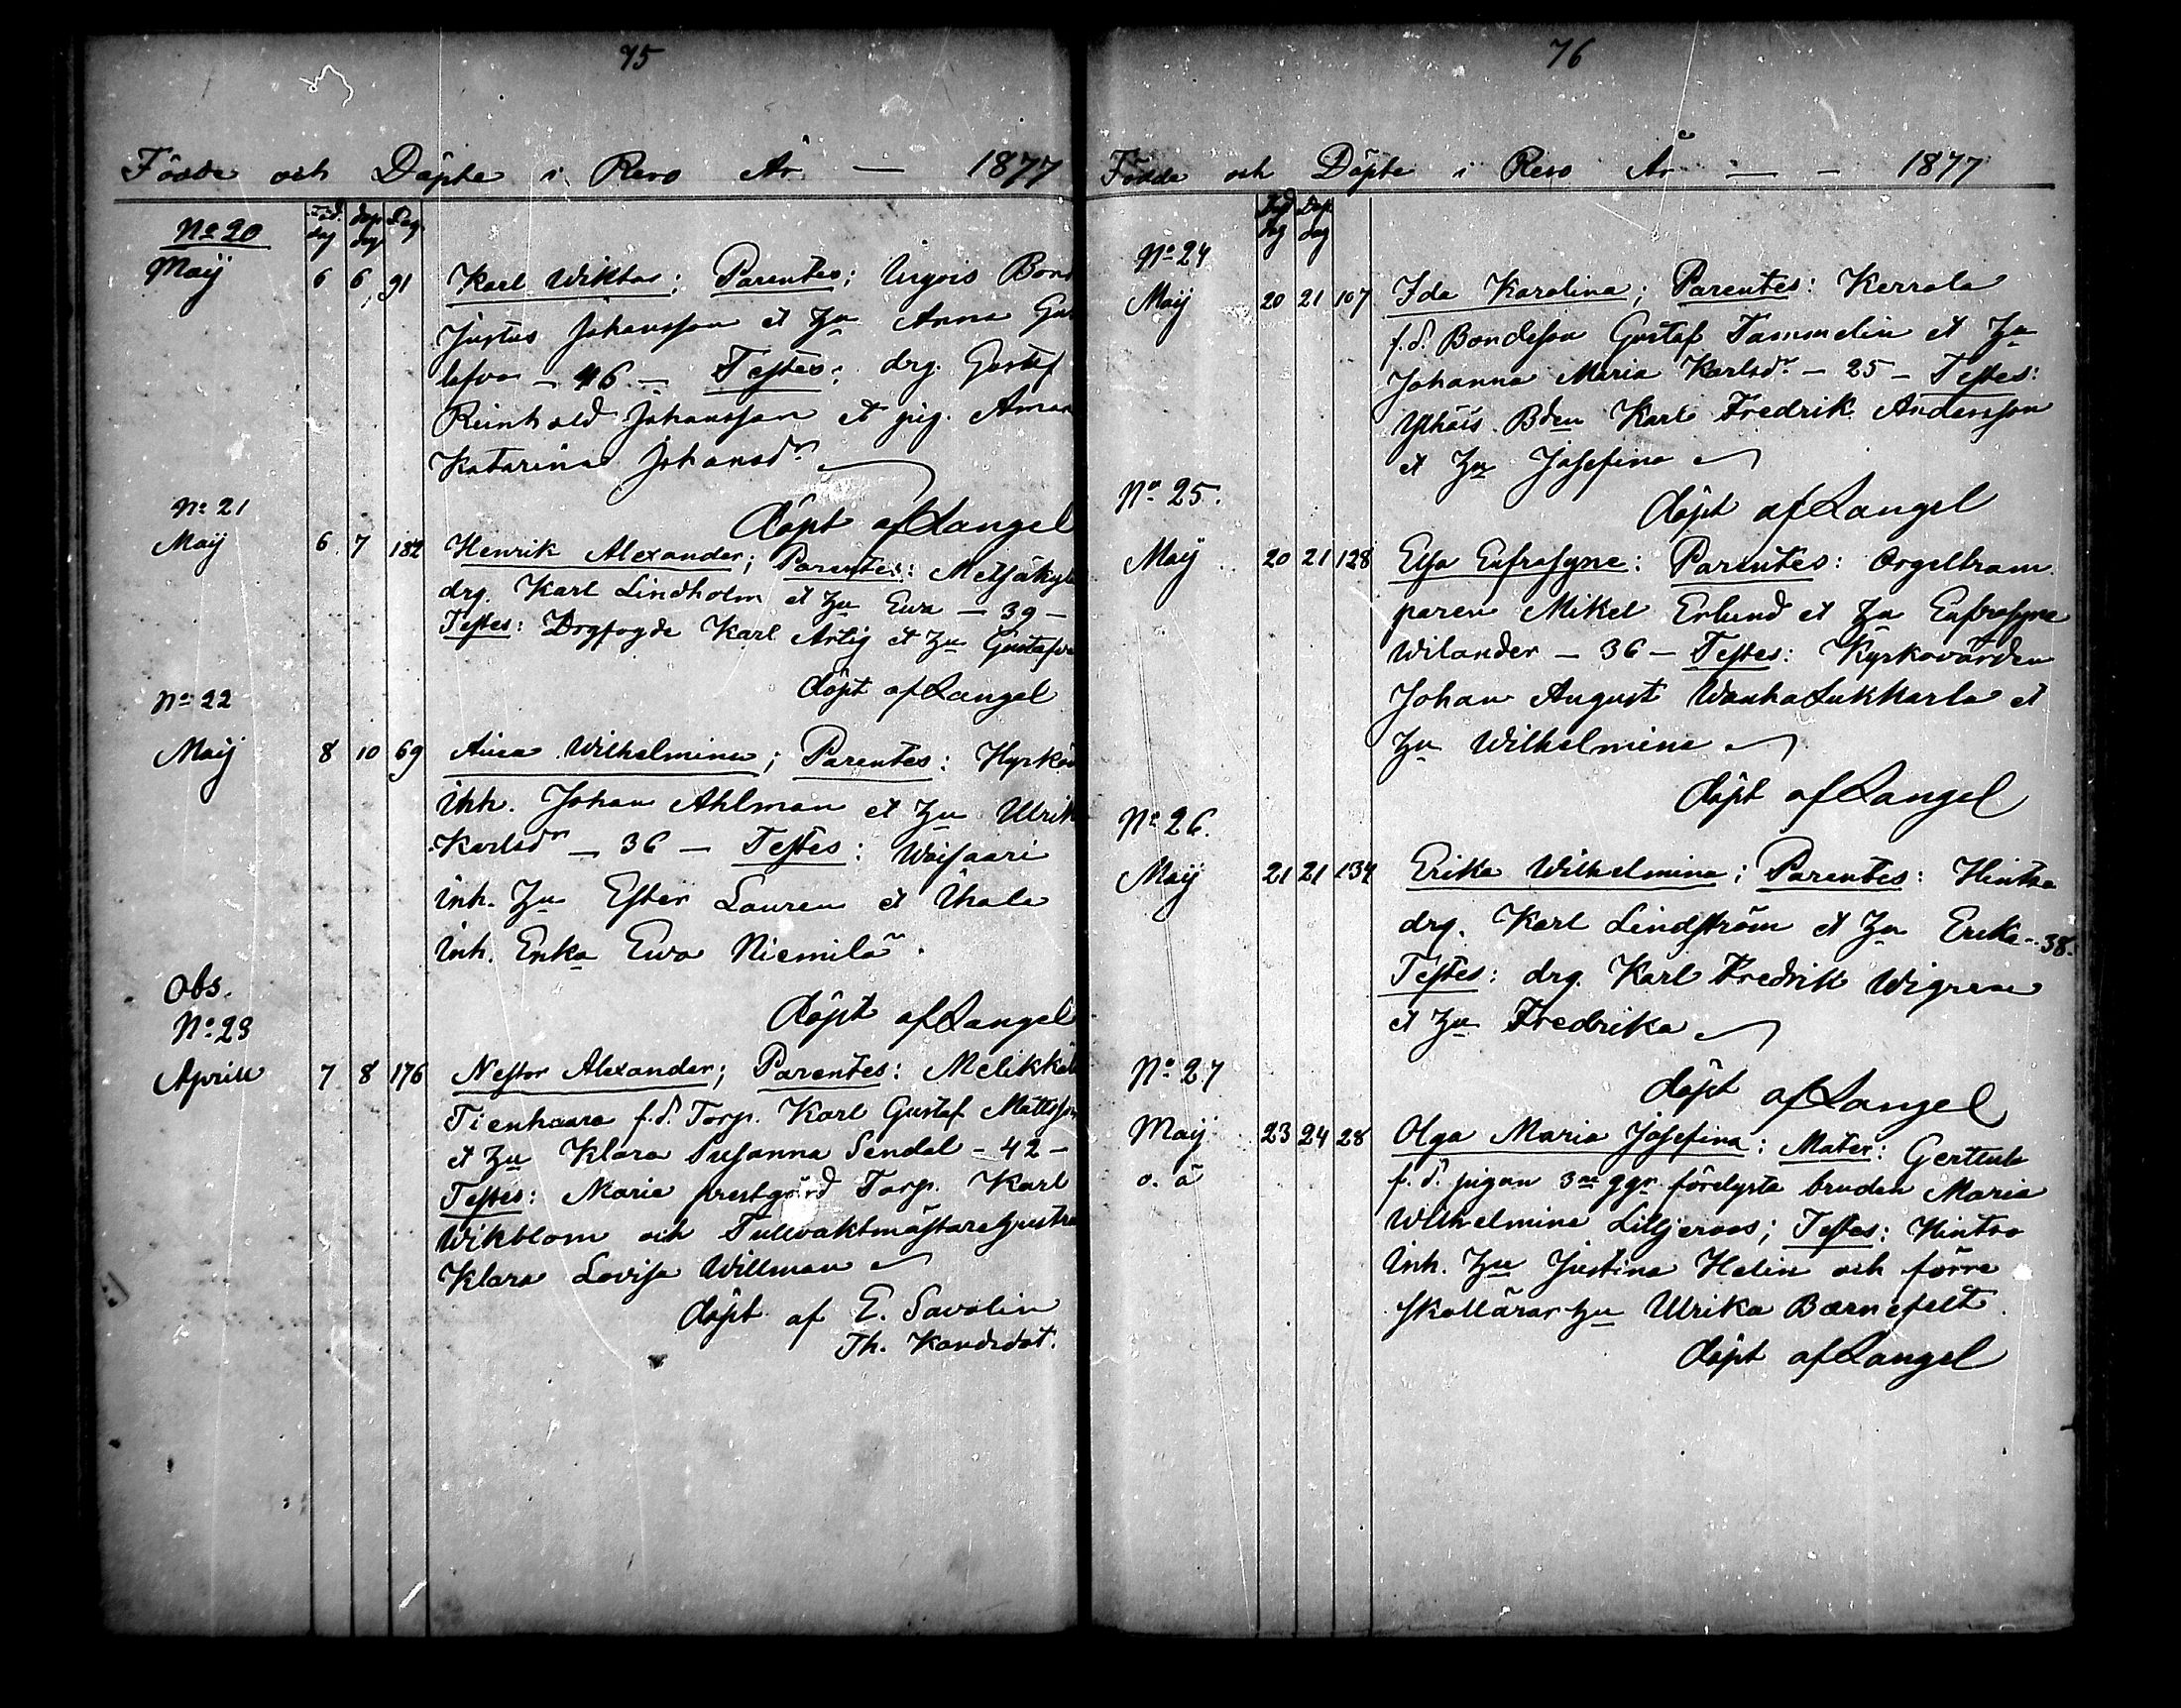 75
Födde och Döpte i Revo År — 1877
No 20
Föd. dag döp dag Pag.
Maij 6 6 91 Karl Wiktor; Parentes: Uigois Bon
Justus Johansson et Hu Anna Gus
lefva - 46 - Testes: drg. Gustaf
Reinhold Johansson et pig. Aman
Katarina Johansdr
döpt af Langel
No 21
Maij 6 7 182 Henrik Alexander; Parentes: Metsäkyl
drg. Karl Lindholm et Hu Eva - 39 -
Testes: Drgfogde Karl Artig et Hu Gustafva
döpt af Langel
No 22
Maij 8 10 69 Aina Wilhelmina; Parentes: Hyrkö
inh. Johan Ahlman et Hu Ulrik
Karlsdr - 36 - Testes: Woisaari
inh. Hu Ester Lauren et Uhala
inh. Enka Ewa Niemilä.
döpt af Langel
Obs.
No 23
Aprill 7 8 176 Nestor Alexander; Parentes: Melikkäl
Tienhaara f.d. Torp. Karl Gustaf Mattsson
et Hu Klara Susanna Sendal - 42 -
Testes: Marie prestgård Torp. Karl
Wikblom och Tullvaktmästarehustru
Klara Lovisa Willman
döpt af E. Savolin
Th. Kandidat.
76
Födde och Döpte i Revo År — 1877
Föd dag Döp dag
No 24
Maij 20 21 107 Ida Karolina; Parentes: Kerrola
f.d. Bondeson Gustaf Tammelin et Hu
Johanna Maria Karlsdr - 25 - Testes:
Ylhäis Bden Karl Fredrik Andersson
et Hu Josefina
döpt af Langel
No 25.
Maij 20 21 128 Elsa Eufrosyne: Parentes: Orgeltram
paren Mikel Erlund et Hu Eufrosyne
Wilander - 36 - Testes: Kyrkovärden
Johan August Wanha Lukkarla et
Hu Wilhelmina
döpt af Langel
No 26.
Maij 21 21 134 Erika Wilhelmina; Parentes: Hintsa
drg. Karl Lindström et Hu Erika - 38.
Testes: drg. Karl Fredrik Wigren
et Hu Fredrika
döpt af Langel
No 27
Maij 23 24 28 Olga Maria Josefina: Mater: Gerttula
o. ä f.d. pigan 3ne ggr förelysta bruden Maria
Wilhelmina Liljeroos; Testes: Hintsa
inh. Hu Justina Helin och förre
skollärar hu Ulrika Bærnefelt.
döpt af Langel